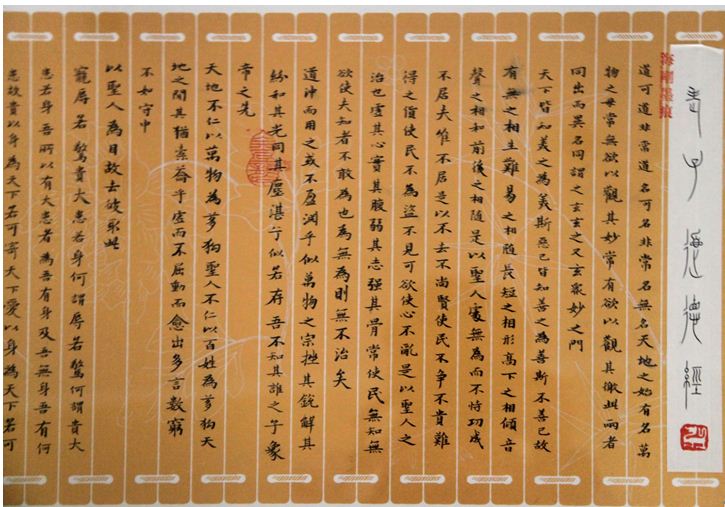 老子道德經
海剛墨痕
道可道非常道名可名非常名無名天地之始有名萬
物之母常無欲以觀其妙常有欲以觀其徼此兩者
同出而異名同謂之玄玄之又玄眾妙之門
天下皆知美之為美斯惡已皆知善之為善斯不善已故
有無之相生難易之相隨長短之相形高下之相傾音
聲之相和前後之相隨是以聖人處無為而不恃功成
不居夫唯不居是以不去不尚賢使民不争不貴難
得之貨使民不為盜不見可欲使心不亂是以聖人之
治也虛其心實其腹弱其志强其骨常使民無知無
欲使夫知者不敢為也為無為則無不治矣
道沖而用之或不盈渊乎似萬物之宗挫其銳解其
紛和其光同其塵湛兮似若存吾不知其誰之子象
帝之先
天地不仁以萬物為芻狗聖人不仁以百姓為芻狗天
地之間其猶橐籥乎虛而不屈動而愈出多言數窮
不如守中
以聖人為目故去彼取此
寵辱若驚貴大患若身何謂辱若驚何謂貴大
患若身吾所以有大患者為吾有身及吾無身吾有何
患故貴以身為天下若可寄天下愛以身為天下若可